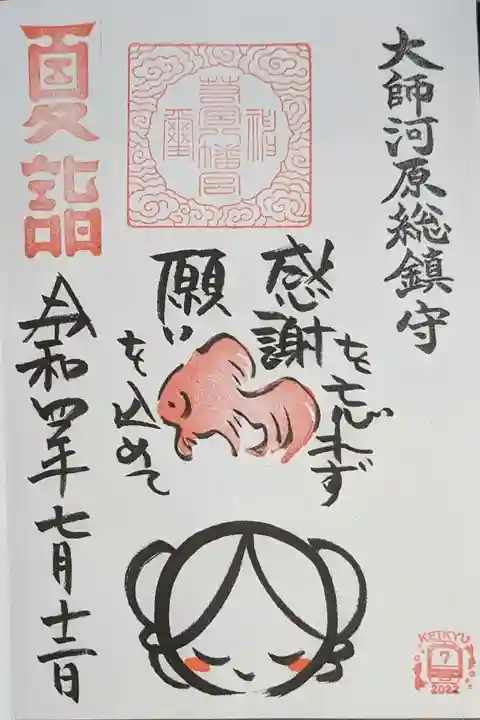 大師河原総鎮守
感謝を忘れず
願いを込めて
夏詣
令和四年七月十二日
KEIKYU
7
2022